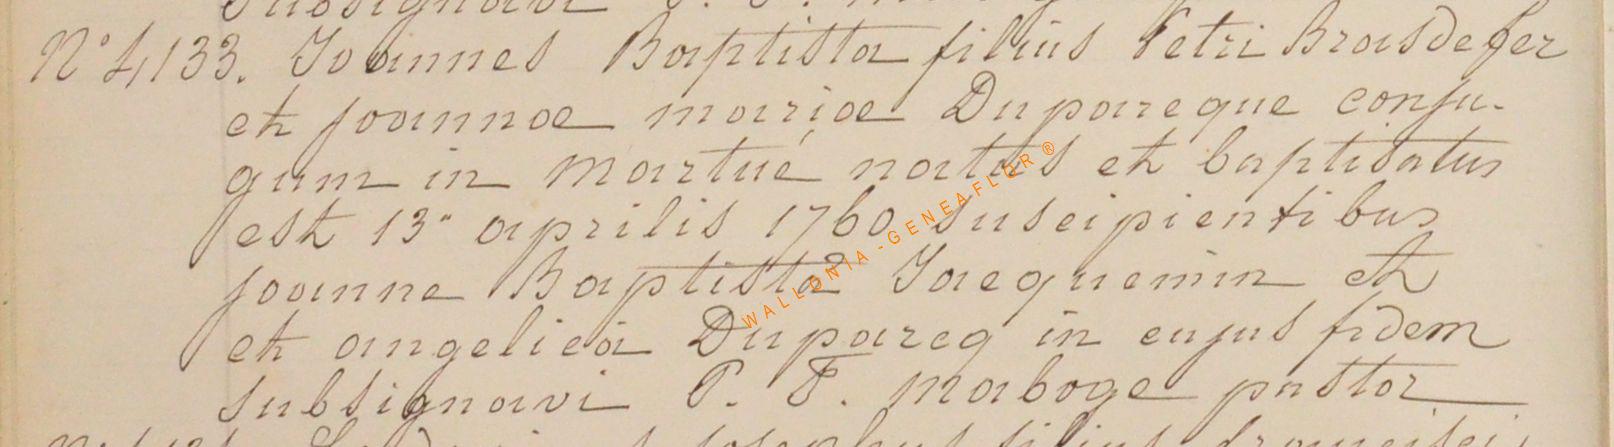 subsignavi
N° 4,133. Joannes Baptista filius Petri Brasdefer
et joannae mariae Duparcque conju-
gum in martué natus et baptisatus
est 13" aprilis 1760 suscipientibus
joanne Baptistâ Jacquemin et
et angelicâ Duparcq in cujus fidem
subsignavi P. F. maboge pastor
WALLONIA-GENEAFLOR ®
josephus filius francisci